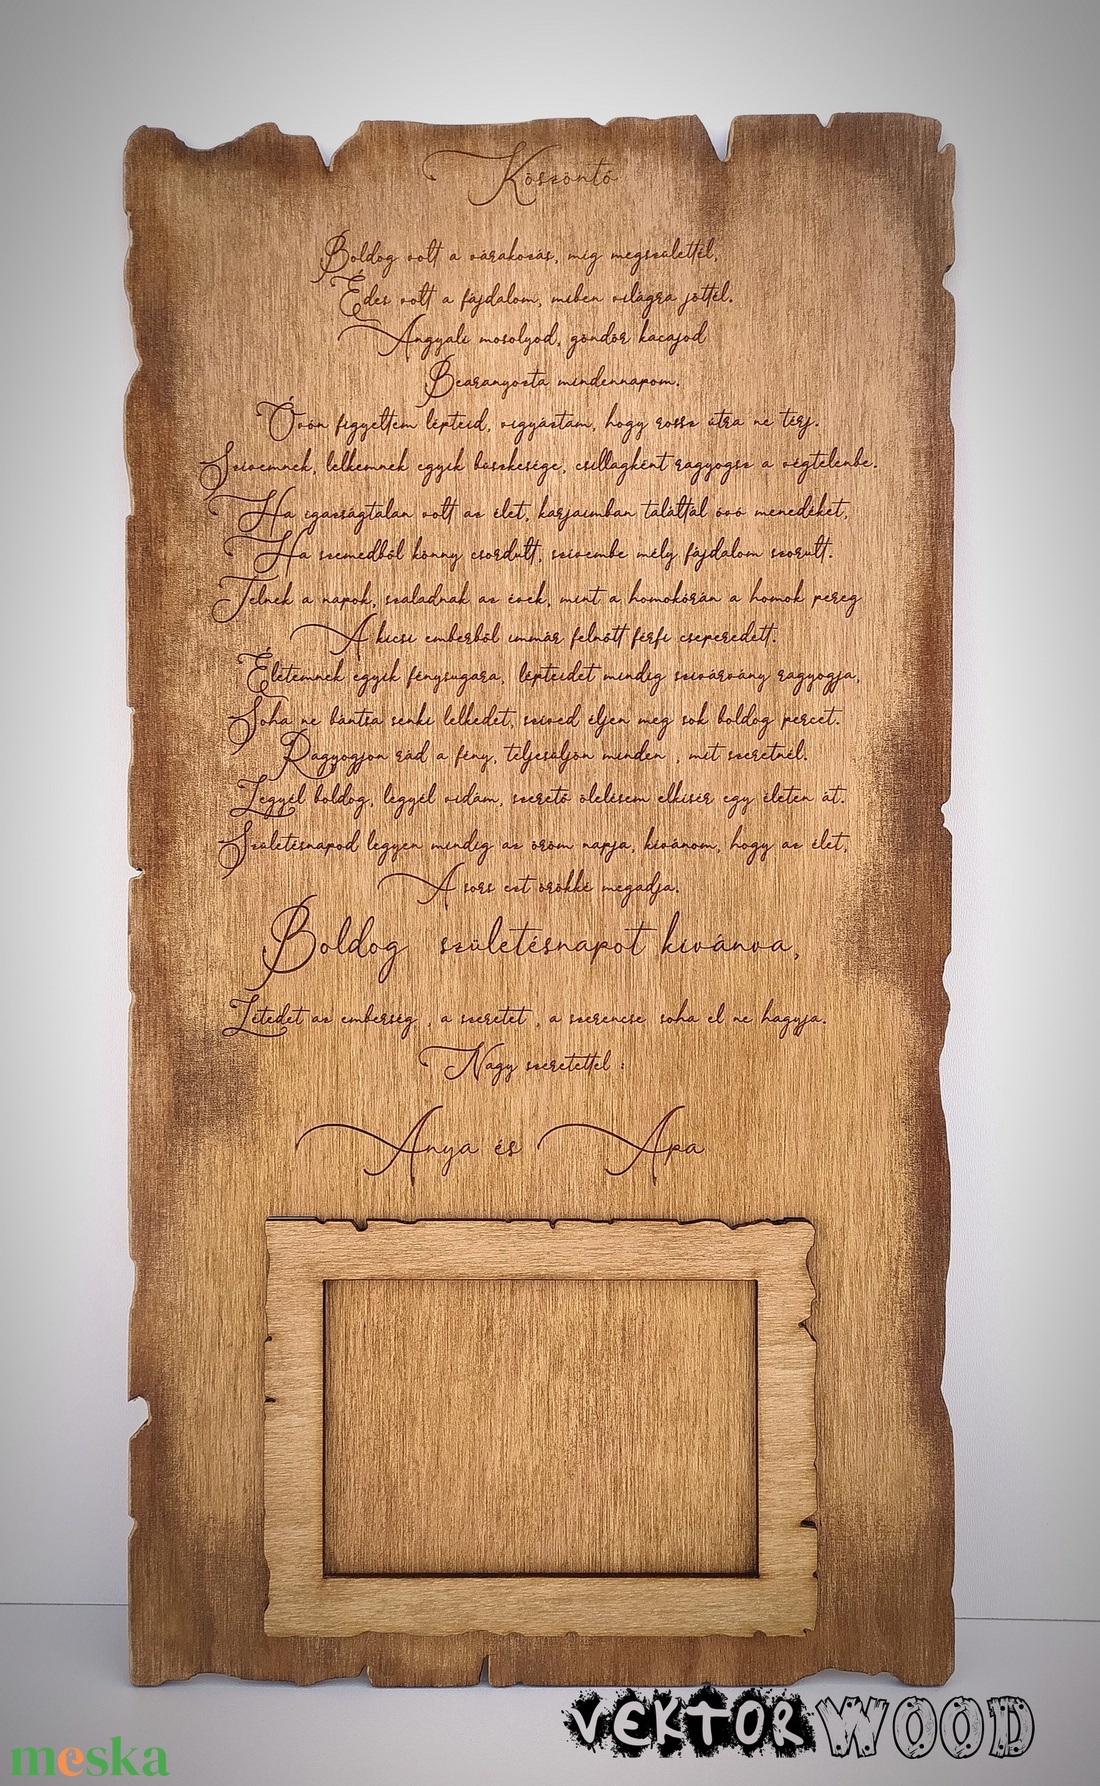 Köszöntő
Boldog volt a várakozás, míg megszülettél,
Édes volt a fájdalom, miben világra jöttél.
Angyali mosolyod, göndör kacajod
Bearanyozta mindennapom.
Óvón figyeltem lépteid, vigyáztam, hogy rossz útra ne térj.
Szívemnek, lelkemnek egyik büszkesége, csillagként ragyogsz a végtelenbe.
Ha igazságtalan volt az élet, karjaimban találtál óvó menedéket,
Ha szemedből könny csordult, szívembe mély fájdalom szorult.
Telnek a napok, szaladnak az évek, mint a homokórán a homok pereg
A kicsi emberből immár felnőtt férfi cseperedett.
Életemnek egyik fénysugara, lépteidet mindig szivárvány ragyogja,
Soha ne bántsa senki lelkedet, szíved éljen meg sok boldog percet.
Ragyogjon rád a fény, teljesüljön minden , mit szeretnél.
Legyél boldog, legyél vidám, szerető ölelésem elkísér egy életen át.
Születésnapod legyen mindig az öröm napja, kívánom, hogy az élet,
A sors ezt örökké megadja.
Boldog születésnapot kívánva,
Létedet az emberség , a szeretet , a szerencse soha el ne hagyja.
Nagy szeretettel :
Anya és Apa
VEKTOR WOOD
meska